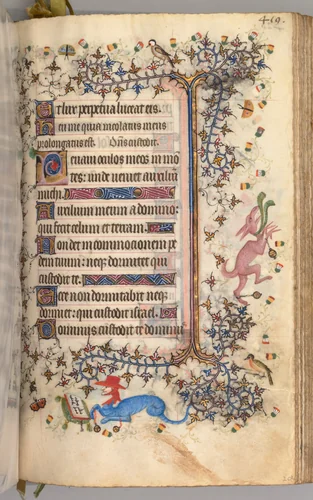 419.
Et lux perpetua luceat eis.
Heu me quia incolatus meus
prolongatus est. Dns custodit.
Leuaui oculos meos in mo
tes: unde ueniet auxiliu
michi.
Auxilium meum a domino:
qui fecit celum et terram.
Non det in commocionem pe
dem tuum: neqz dormitet qui
custodit te.
Ecce non dormitabit neqz
dormiet: qui custodit israel.
Dominus custodit te domin